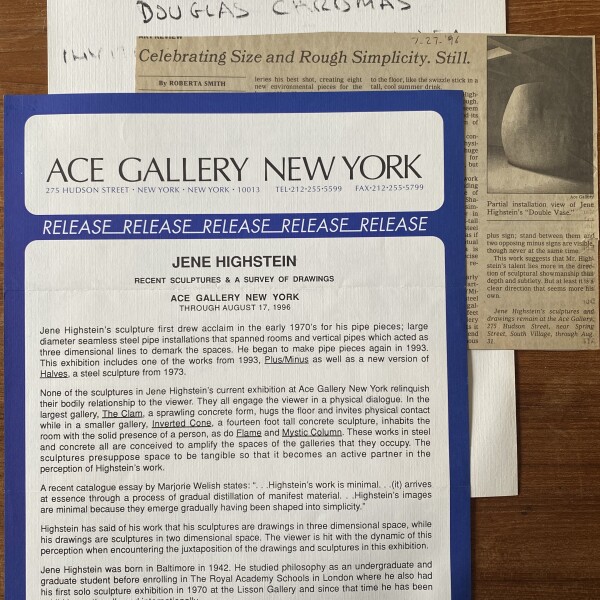 DOUGLAS CHRISMAS
7.27.96
Celebrating Size and Rough Simplicity. Still.
By ROBERTA SMITH
leries his best shot, creating eight
new environmental pieces for the
to the floor, like the swizzle stick in a
tall, cool summer drink.
Ace Gallery
Partial installation view of Jene
Highstein's "Double Vase."
plus sign; stand between them and
two opposing minus signs are visible,
though never at the same time.
This work suggests that Mr. High-
stein's talent lies more in the direc-
tion of sculptural showmanship than
depth and subtlety. But at least it is a
clear direction that seems more his
own.
Jene Highstein's sculptures and
drawings remain at the Ace Gallery,
275 Hudson Street, near Spring
Street, South Village, through Aug.
31.
ACE GALLERY NEW YORK
275 HUDSON STREET · NEW YORK · NEW YORK · 10013 TEL·212·255·5599 FAX·212·255·5799
RELEASE RELEASE RELEASE RELEASE RELEASE
JENE HIGHSTEIN
RECENT SCULPTURES & A SURVEY OF DRAWINGS
ACE GALLERY NEW YORK
THROUGH AUGUST 17, 1996
Jene Highstein's sculpture first drew acclaim in the early 1970's for his pipe pieces; large
diameter seamless steel pipe installations that spanned rooms and vertical pipes which acted as
three dimensional lines to demark the spaces. He began to make pipe pieces again in 1993.
This exhibition includes one of the works from 1993, Plus/Minus as well as a new version of
Halves, a steel sculpture from 1973.
None of the sculptures in Jene Highstein's current exhibition at Ace Gallery New York relinquish
their bodily relationship to the viewer. They all engage the viewer in a physical dialogue. In the
largest gallery, The Clam, a sprawling concrete form, hugs the floor and invites physical contact
while in a smaller gallery, Inverted Cone, a fourteen foot tall concrete sculpture, inhabits the
room with the solid presence of a person, as do Flame and Mystic Column. These works in steel
and concrete all are conceived to amplify the spaces of the galleries that they occupy. The
sculptures presuppose space to be tangible so that it becomes an active partner in the
perception of Highstein's work.
A recent catalogue essay by Marjorie Welish states: ". . .Highstein's work is minimal. . .(it) arrives
at essence through a process of gradual distillation of manifest material. . .Highstein's images
are minimal because they emerge gradually having been shaped into simplicity."
Highstein has said of his work that his sculptures are drawings in three dimensional space, while
his drawings are sculptures in two dimensional space. The viewer is hit with the dynamic of this
perception when encountering the juxtaposition of the drawings and sculptures in this exhibition.
Jene Highstein was born in Baltimore in 1942. He studied philosophy as an undergraduate and
graduate student before enrolling in The Royal Academy Schools in London where he also had
his first solo sculpture exhibition in 1970 at the Lisson Gallery and since that time he has been